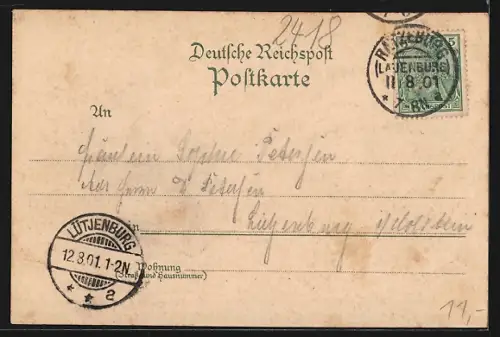 2418
Deutsche Reichspost
Postkarte
RATZEBURG
(LAUENBURG)
11 8.01
* 7-8N
5
An
Fräulein Sophie Petersen
Adr Herrn D. Petersen
in
Lütjenburg i/Holstein
LÜTJENBURG
12.8.01.1-2N
* * a
Wohnung
(Straße und Hausnummer)
11,-